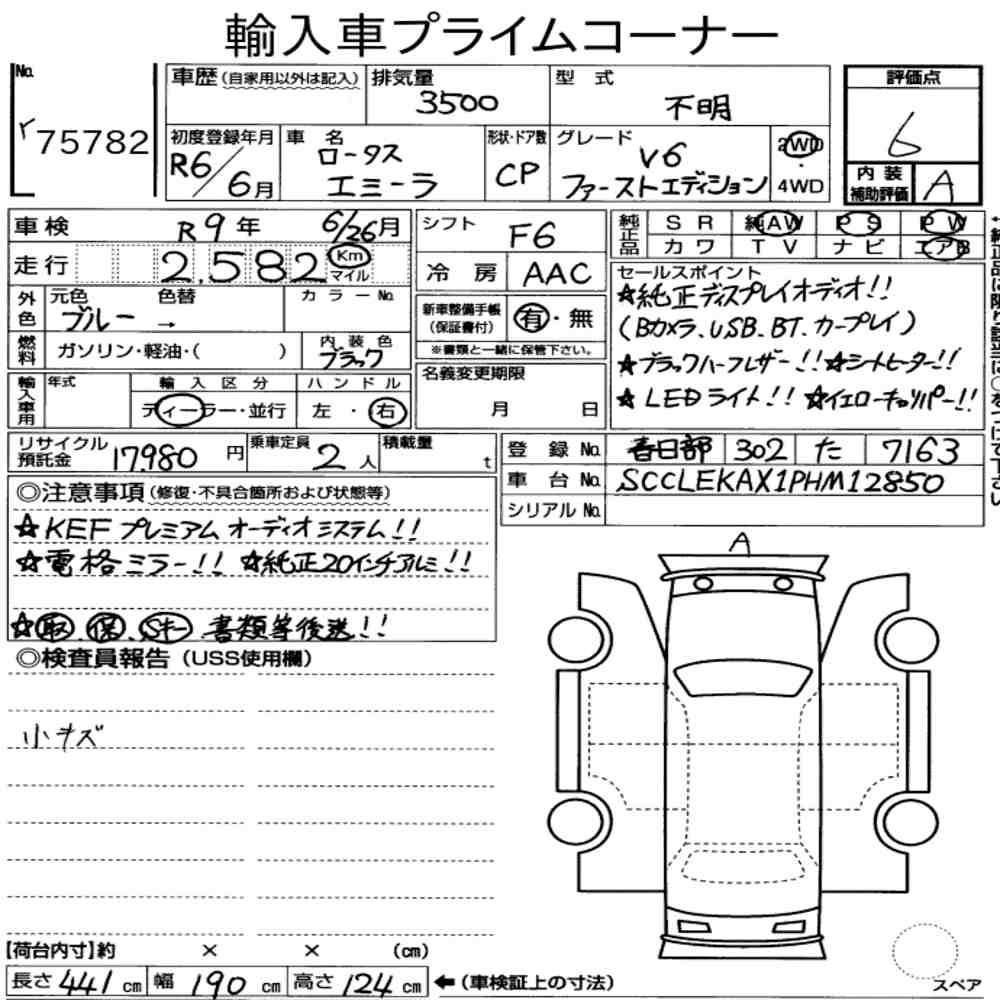 輸入車プライムコーナー
No.
r75782
車歴 (自家用以外は記入)
排気量
3500
型 式
不明
評価点
6
初度登録年月
R6/6月
車 名
ロータス
エミーラ
形状・ドア数
CP
グレード
V6
ファーストエディション
2WD
・
4WD
内 装
補助評価
A
車検
R9年 6/26月
シフト
F6
純正品
SR 純AW PS PW
カワ TV ナビ エアB
走行
2,582 Km
マイル
冷 房
AAC
セールスポイント
☆純正ディスプレイオーディオ!!
(Bカメラ、USB、BT、カープレイ)
☆ブラックハーフレザー!!☆シートヒーター!!
☆LEDライト!!☆イエローキャリパー!!
外色
元色 色替
ブルー →
カラーNo.
新車整備手帳
(保証書付)
有・無
※書類と一緒に保管下さい。
燃料
ガソリン・軽油・( )
内 装 色
ブラック
輸入車用
年式
輸 入 区 分
ディーラー・並行
ハ ン ド ル
左 ・ 右
名義変更期限
月 日
←純正品に限り該当に○をつけて下さい
リサイクル
預託金
17,980 円
乗車定員
2 人
積載量
t
登 録 No.
春日部 302 た 7163
車 台 No.
SCCLEKAX1PHM12850
シリアル No.
◎注意事項(修復・不具合箇所および状態等)
☆KEFプレミアムオーディオシステム!!
☆電格ミラー!! ☆純正20インチアルミ!!
☆取、保、Sキー 書類等後送!!
◎検査員報告(USS使用欄)
小キズ
A
【荷台内寸】約 × × (cm)
長さ 441 cm 幅 190 cm 高さ 124 cm ←(車検証上の寸法)
スペア